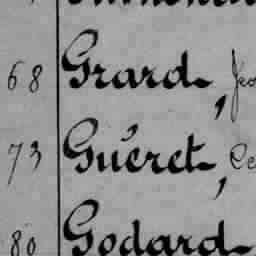 68 Grard,
73 Guéret,
80 Godard